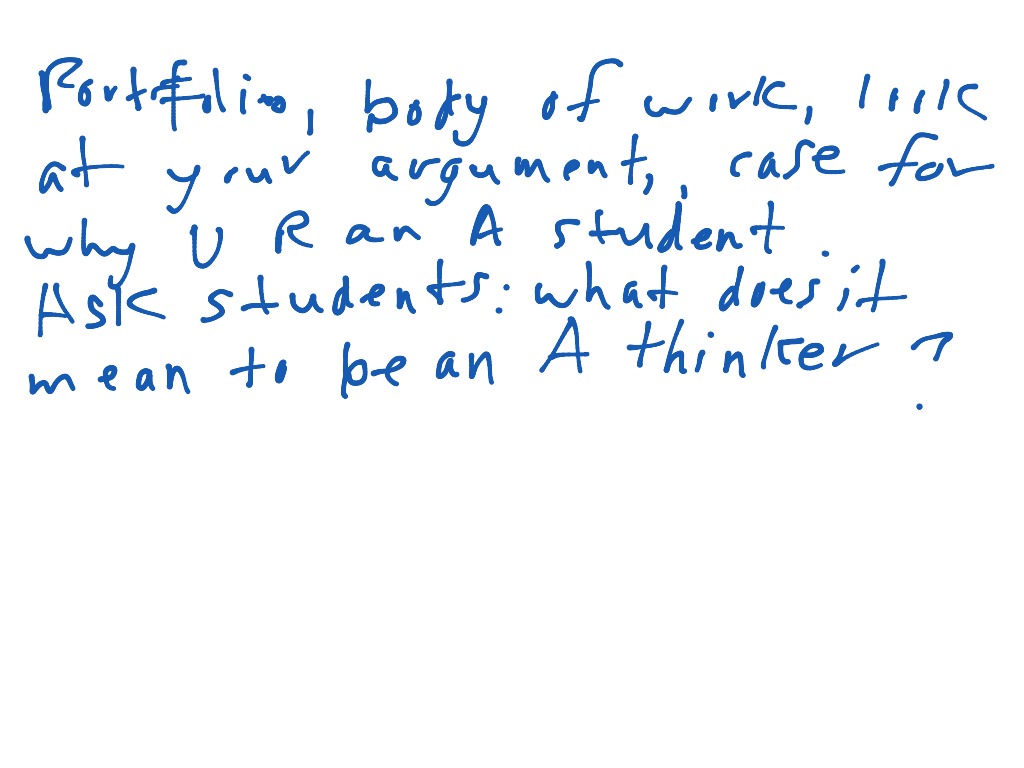 Portfolio, body of work, look
at your argument, case for
why U R an A student.
Ask students: what does it
mean to be an A thinker?